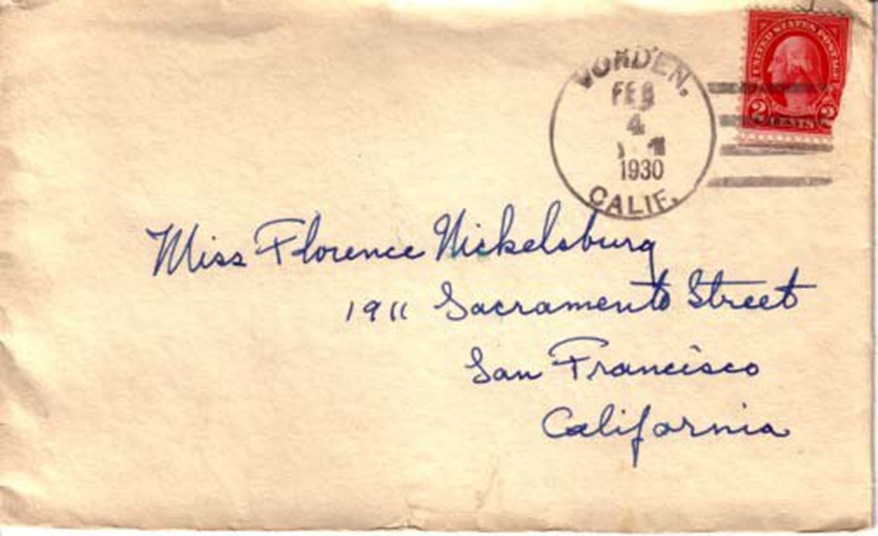 VORDEN,
FEB
4
1930
CALIF.
UNITED STATES POSTAGE
2 CENTS 2
Miss Florence Nickelsburg
1911 Sacramento Street
San Francisco
California